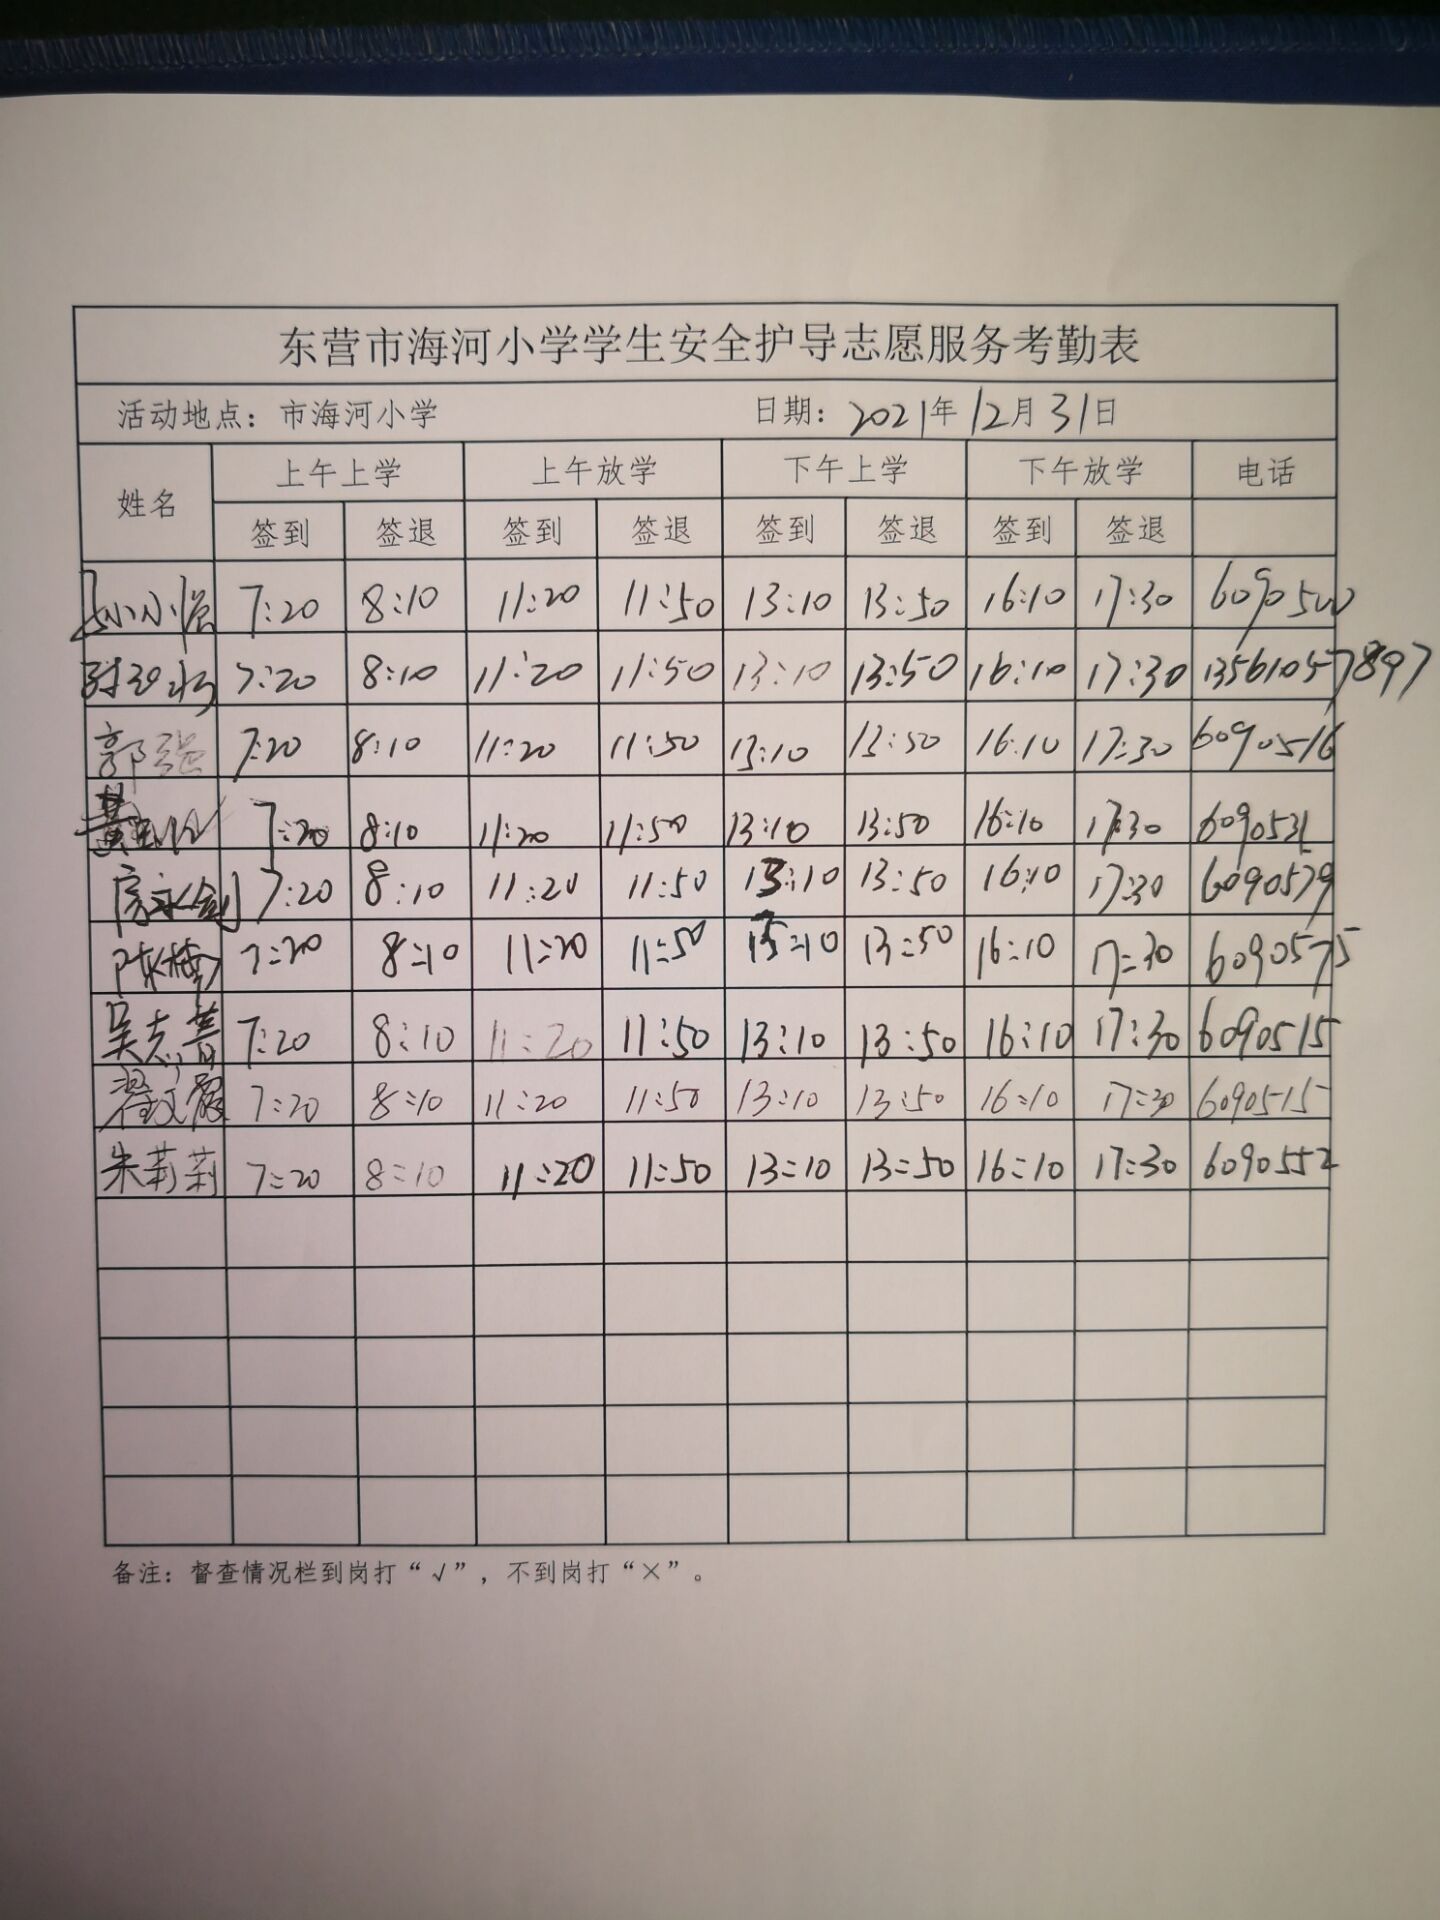 东营市海河小学学生安全护导志愿服务考勤表
活动地点：市海河小学 日期：2021年12月31日
姓名 上午上学 上午放学 下午上学 下午放学 电话
签到 签退 签到 签退 签到 签退 签到 签退
7:20 8:10 11:20 11:50 13:10 13:50 16:10 17:30 6090500
7:20 8:10 11:20 11:50 13:10 13:50 16:10 17:30 13561057897
郭强 7:20 8:10 11:20 11:50 13:10 13:50 16:10 17:30 6090516
黄 7:20 8:10 11:20 11:50 13:10 13:50 16:10 17:30 6090531
房永剑 7:20 8:10 11:20 11:50 13:10 13:50 16:10 17:30 6090579
陈梅 7:20 8:10 11:20 11:50 13:10 13:50 16:10 17:30 6090575
吴志菁 7:20 8:10 11:20 11:50 13:10 13:50 16:10 17:30 6090515
翟文霞 7:20 8:10 11:20 11:50 13:10 13:50 16:10 17:30 6090515
朱莉莉 7:20 8:10 11:20 11:50 13:10 13:50 16:10 17:30 6090552
备注：督查情况栏到岗打“√”，不到岗打“×”。